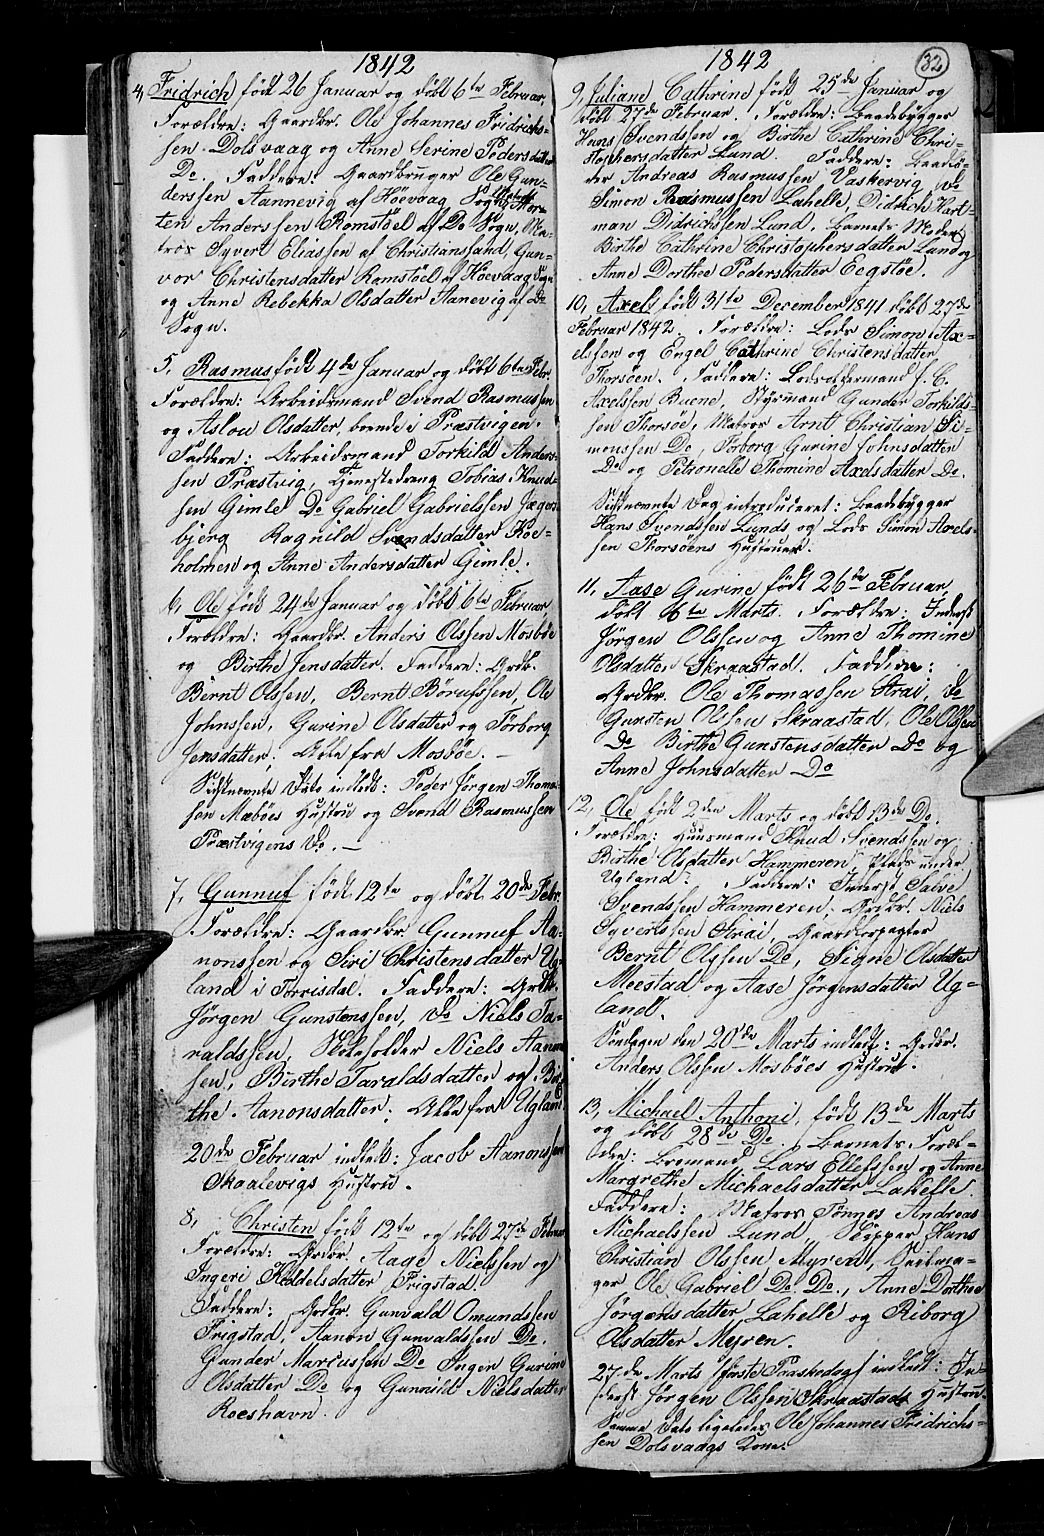 1842
4, Fridrich født 26 Januar og døbt 6te Februar,
Forældre: Gaardbr. Ole Johannes Fridrichs-
sen Dolsvaag og Anne Serine Pedersdatter
Do. Faddere: Gaardbruger Ole Gun-
derssen Aannevig af Höevaag Sogn,
ten Anderssen Romstöel af Do Sogn, Ma-
tros Syvert Eliassen af Christianssand, Gun-
vor Christensdatter Ramstöel af Höevaag Sogn
og Anne Rebekka Olsdatter Aanevig af Do
Sogn.
5, Rasmus født 4de Januar og døbt 6te Febr.
Forældre: Arbeidsmand Svend Rasmussen
og Aslou Olsdatter, boende i Præstvigen.
Faddere: Arbeidsmand Torkild Anders-
sen Præstvig, Tjenestedreng Tobias Knud-
sen Gimle Do Gabriel Gabrielssen Jæger-
bjerg Ragnild Svendsdatter Koe-
holmen og Anne Andersdatter Gimle.
6, Ole født 24de Januar og døbt 6te Februar,
Forældre: Gaardbr. Anders Olssen Mosböe
og Birthe Jensdatter. Faddere: Grdbr.
Bernt Olssen, Bernt Börufssen, Ole
Johnssen, Gurine Olsdatter og Torborg
Jensdatter. Alle fra Mosböe. —
Sidstnævnte Dato indledt: Peder Jörgen Thoma-
sen Mæböes Hustru og Svend Rasmussen
Præstvigens Do. —
7, Gunnuf født 12te og døbt 20de Febr.
Forældre: Gaardbr. Gunnuf Aa-
nonssen og Siri Christensdatter Ug-
land i Torrisdal. Faddere: Grdbr.
Jörgen Gunstenssen, Do Niels Ta-
raldssen, Skoleholder Niels Aanon-
sen, Birthe Taraldsdatter og Bir-
the Aanonsdatter. Alle fra Ugland.
20de Februar indledt: Jacob Aanonssen
Skaalevigs Hustru.
8, Christen født 12te og døbt 27de Februar
Forældre: Grdbr. Aage Nielssen og
Ingeri Kiddelsdatter Frigstad.
Faddere: Grdbr. Gunvald Omundssen
Frigstad, Aanon Gunvaldssen Do.
Gunder Marcussen Do Inger Gurine
Olsdatter Do og Gunnild Nielsdatter
Roeshavn.
1842
32
9, Juliane Cathrine født 25de Januar og
døbt 27de Februar. Forældre: Baadebygger
Hans Svendssen og Birthe Cathrine Chri-
stophersdatter Lund. Faddere:
Andreas Rasmussen Vaskervig, Do
Simon Rasmussen Lahelle, Didrich Hart-
man Didrichssen Lund, Barnets Moder
Birthe Cathrine Christophersdatter Lund og
Anne Dorthee Pedersdatter Eegstöe.
10, Axel født 31te December 1841 døbt 27de
Februar 1842. Forældre: Lods Simon Ax-
elssen og Engel Cathrine Christensdatter
Thorsöen. Faddere: Lodsoldermand J. C.
Axelssen Buene, Styrmand Gunder Torkilds-
sen Thorsöe, Matros Arnt Christian Si-
monssen Do, Torborg Gurine Johnsdatter
Do og Petronelle Thomine Axelsdatter Do.
Sidstnævnte Dag introduceret: Baadebygger
Hans Svendssen Lunds og Lods Simon Axels-
sen Thorsöens Hustruer.
11, Aase Gurine født 26de Februar,
døbt 6te Marts. Forældre: Inderst
Jörgen Olssen og Anne Thomine
Olsdatter Skraastad. Faddere:
Grdbr. Ole Thomassen Strai, Do
Gunsten Olssen Skraastad, Ole Olssen
Do Birthe Gunstensdatter Do og
Anne Johnsdatter Do
12, Ole født 2den Marts og døbt 13de Do.
Forældre: Huusmand Knud Svendssen og
Birthe Olsdatter Hammeren, Plads under
Ugland. Faddere: Inderst Salve
Svendssen Hammeren, Grdbr. Niels
Syvertssen Strai, Gaardforpagter
Bernt Olssen Do, Signe Olsdatter
Meestad og Aase Jörgensdatter Ug-
land.
Søndagen den 20de Marts indledt: Grdbr.
Anders Olssen Mosböes Hustru.
13, Michael Anthoni, født 13de Marts
og døbt 28de Do. Barnets Foræl-
dre: Bremand Lars Ellefssen og Anne
Margrethe Michaelsdatter Lahelle.
Faddere: Matros Tönnes Andreas
Michaelssen Lund, Skipper Hans
Christian Olssen Myren, Seilma-
ger Ole Gabriel Do. Do., Anne Dorthee
Jörgensdatter Lahelle og Riborg
Olsdatter Myren.
27de Marts (første Paaskedag) indledt: In-
derst Jörgen Olssen Skraastads Hustru.
Samme Dato ligeledes Ole Johannes Fridrichs-
sen Dolsvaags Kone.